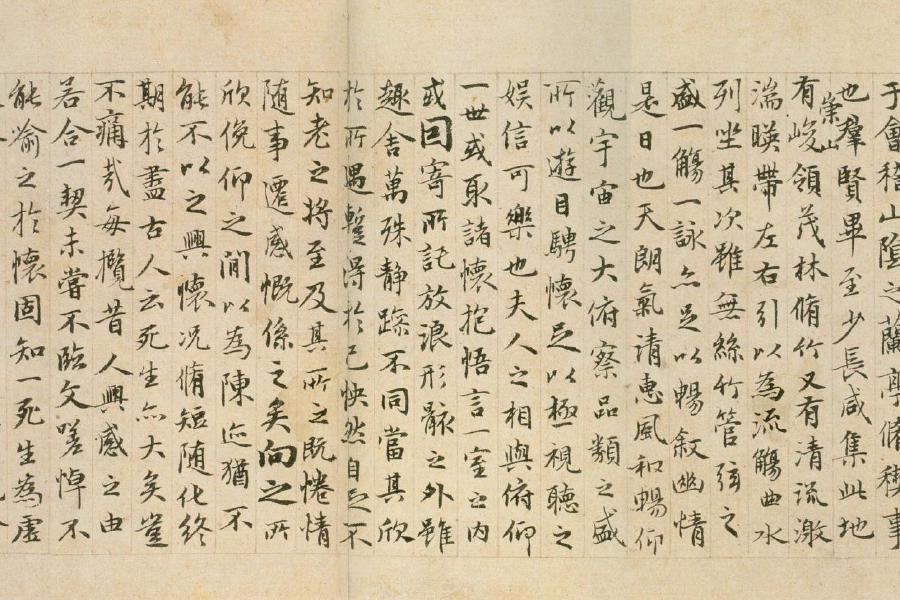 于會稽山陰之蘭亭脩稧事
也羣賢畢至少長咸集此地
有崇山峻領茂林脩竹又有清流激
湍暎帶左右引以為流觴曲水
列坐其次雖無絲竹管弦之
盛一觴一詠亦足以暢敘幽情
是日也天朗氣清惠風和暢仰
觀宇宙之大俯察品類之盛
所以遊目騁懷足以極視聽之
娛信可樂也夫人之相與俯仰
一世或取諸懷抱悟言一室之內
或因寄所託放浪形骸之外雖
趣舍萬殊靜躁不同當其欣
於所遇暫得於己怏然自足不
知老之將至及其所之既惓情
隨事遷感慨係之矣向之所
欣俛仰之閒以為陳迹猶不
能不以之興懷況脩短隨化終
期於盡古人云死生亦大矣豈
不痛哉每攬昔人興感之由
若合一契未嘗不臨文嗟悼不
能喻之於懷固知一死生為虛